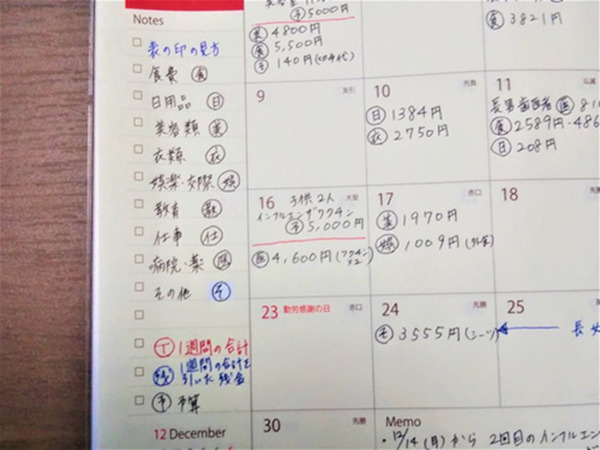 Notes
表の印の見方
食費 食
日用品 日
美容類 美
衣類 衣
娯楽・交際 娯
教育 教
仕事 仕
病院・薬 医
その他 そ
T 1週間の合計
残 1週間の合計を
引いた残金
予 予算
12 December
予 5000円
美 4800円
食 5,500円
そ 140円
食 3821円
9 友引
10 先負
日 1384円
衣 2750円
11 仏滅
長男歯医者 医 810
食 2589円-486
日 208円
16 子供2人 大安
インフルエンザワクチン
予 5,000円
医 4,600円(ワクチン
×2)
17 赤口
美 1970円
娯 1009円(外食)
18
23 勤労感謝の日 赤口
24 先勝
そ 3555円(シーツ)
25
30 先勝
Memo
・12/14(月)から 2回目のインフルエン